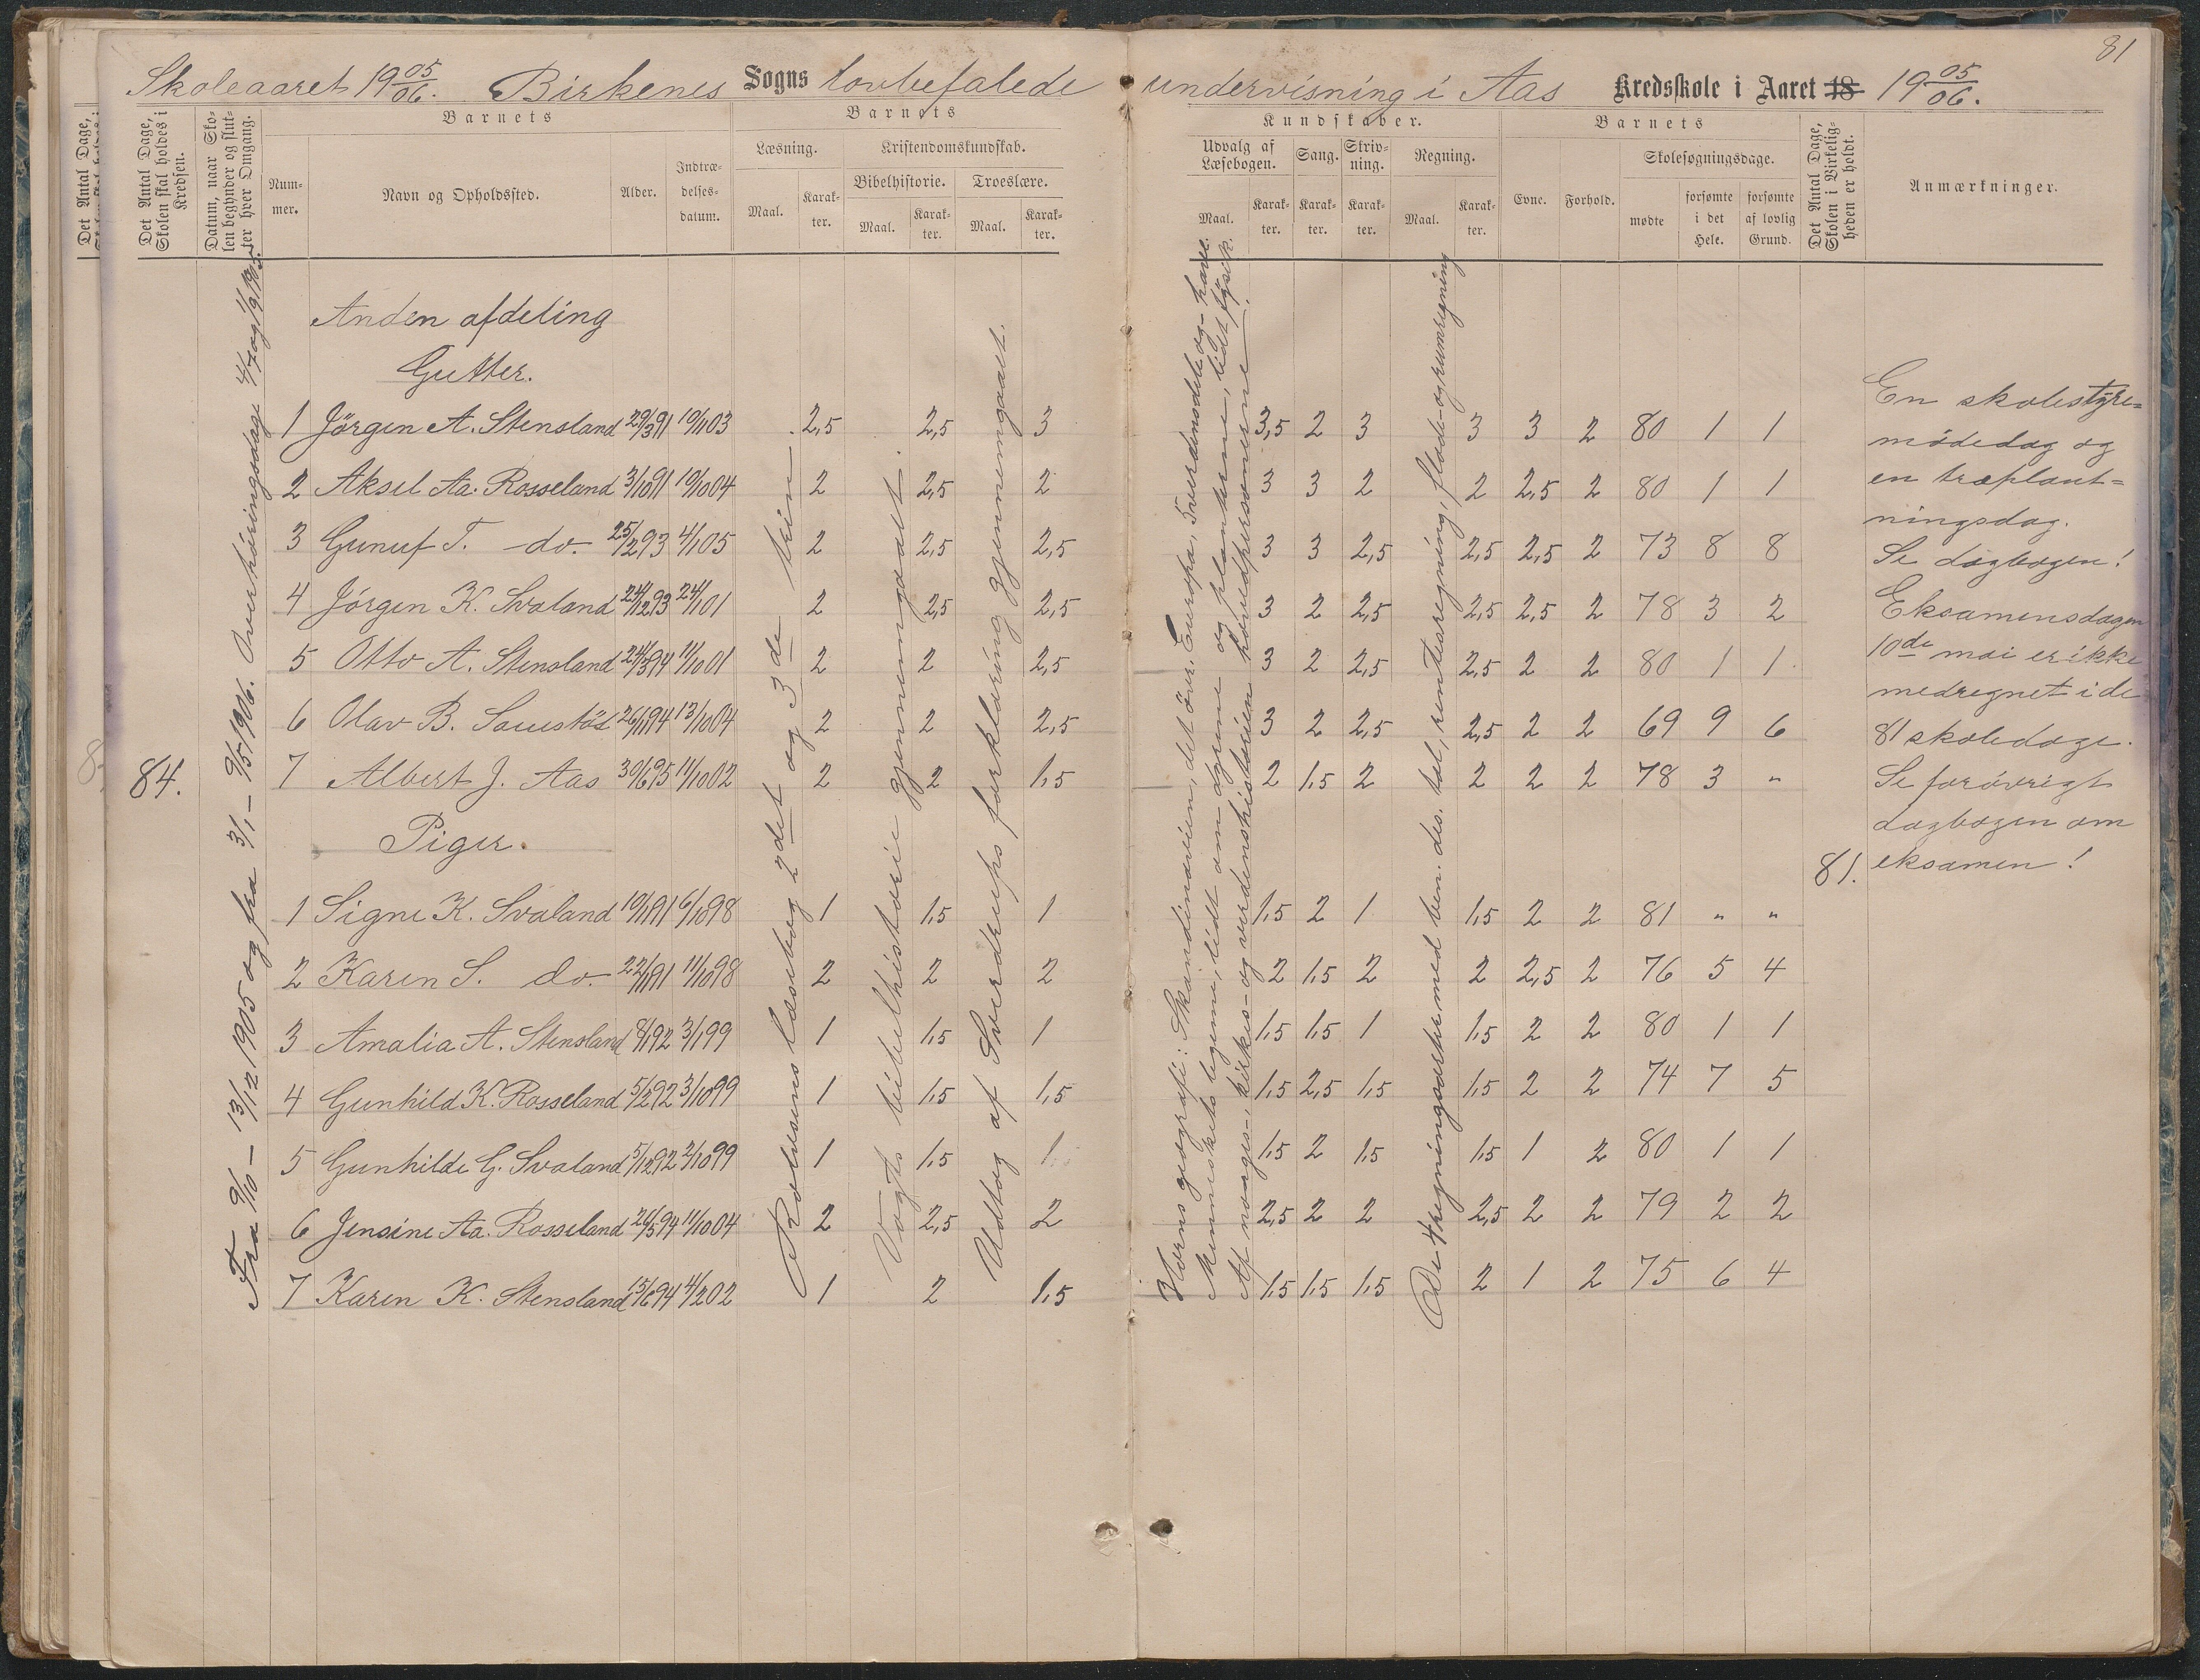 81
Skoleaaret 19 05/06. Birkenes Sogns lovbefalede undervisning i Aas Kredsskole i Aaret 18 19 05/06.
Det Antal Dage,
Det Antal Dage, Skolen skal holdes i Kredsen.
Datum, naar Skolen begynder og slutter hver Omgang.
Barnets
Nummer.
Navn og Opholdssted.
Alder.
Indtrædelsesdatum.
Barnets
Læsning.
Maal. Karakter.
Kristendomskundskab.
Bibelhistorie. Troeslære.
Maal. Karakter. Maal. Karakter.
Kundskaber.
Udvalg af Læsebogen. Sang. Skrivning. Regning.
Maal. Karakter. Karakter. Karakter. Maal. Karakter.
Barnets
Evne. Forhold. Skolesøgningsdage.
mødte forsømte i det Hele. forsømte af lovlig Grund.
Det Antal Dage, Skolen i Virkeligheden er holdt.
Anmærkninger.
84.
Fra 9/10 – 13/12 1905 og fra 3/1 – 9/5 1906. Overhøringsdage 4/7 og 1/9 1905.
Anden afdeling
Gutter.
1 Jörgen A. Stensland 29/3 91 10/1 03 2,5 2,5 3 3,5 2 3 3 3 2 80 1 1
2 Aksel Aa. Rosseland 3/10 91 10/10 04 2 2,5 2 3 3 2 2 2,5 2 80 1 1
3 Gunuf T. do. 25/2 93 4/1 05 2 2,5 2,5 3 3 2,5 2,5 2,5 2 73 8 8
4 Jörgen K. Svaland 24/12 93 24/1 01 2 2,5 2,5 3 2 2,5 2,5 2,5 2 78 3 2
5 Otto A. Stensland 24/3 94 11/10 01 2 2 2,5 3 2 2,5 2,5 2 2 80 1 1
6 Olav B. 26/1 94 13/10 04 2 2 2,5 3 2 2,5 2,5 2 2 69 9 6
7 Albert J. Aas 30/6 95 11/10 02 2 2 1,5 2 1,5 2 2 2 2 78 3 "
Piger.
1 Signe K. Svaland 10/1 91 6/10 98 1 1,5 1 1,5 2 1 1,5 2 2 81 " "
2 Karen S. do. 22/1 91 11/10 98 2 2 2 2 1,5 2 2 2,5 2 76 5 4
3 Amalia A. Stensland 8/1 92 3/1 99 1 1,5 1 1,5 1,5 1 1,5 2 2 80 1 1
4 Gunhild K. Rosseland 5/2 92 3/10 99 1 1,5 1,5 1,5 2,5 1,5 1,5 2 2 74 7 5
5 Gunhilde G. Svaland 5/12 92 2/10 99 1 1,5 1,5 2 1,5 1,5 1 2 80 1 1
6 Jensine Aa. Rosseland 26/5 94 11/10 04 2 2,5 2 2,5 2 2 2,5 2 2 79 2 2
7 Karen K. Stensland 15/6 94 4/2 02 1 2 1,5 1,5 1,5 1,5 2 1 2 75 6 4
Rolvsens læsebog 2det og 3de trin
Vogts bibelhistorie gjennemgaaet.
Udtog af Sverdrups forklaring gjennemgaaet.
Horns geografi: Skandinavien, det övr. Europa, Tværdensdele og -have.
Menneskets legeme, lidt om dyrene og planterne, lidt fysik.
Af norges-, kirkes- og verdenshistorien hovedpersonerne.
De 4 regningsarter med ben. des. tal, rentesregning, flade- og rumregning
81.
En skolestyre=
mödedag og
en træplant=
ningsdag.
Se dagbogen!
Eksamensdagen
10de mai er ikke
medregnet i de
81 skoledage.
Se forövrigt
dagbogen om
eksamen!